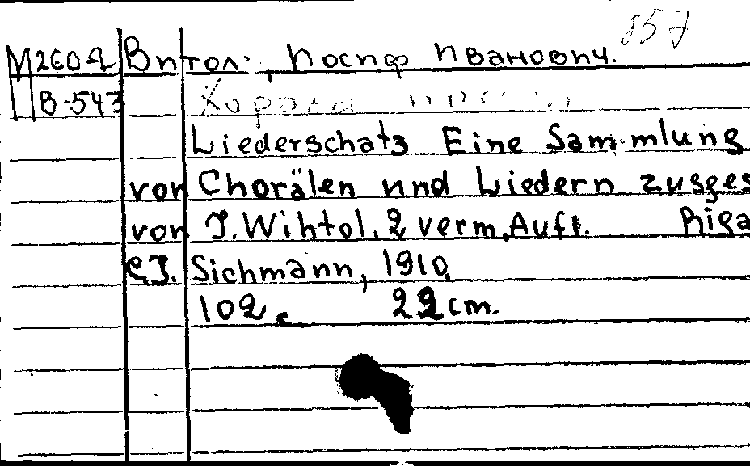 857
М2604 Витол, Иосиф Иванович.
В-543
Liederschatz Eine Sammlung
von Chorälen und Liedern zusges
von J. Wihtol. 2 verm. Aufl. Riga
C.J. Sichmann, 1910
102 с. 22 cm.